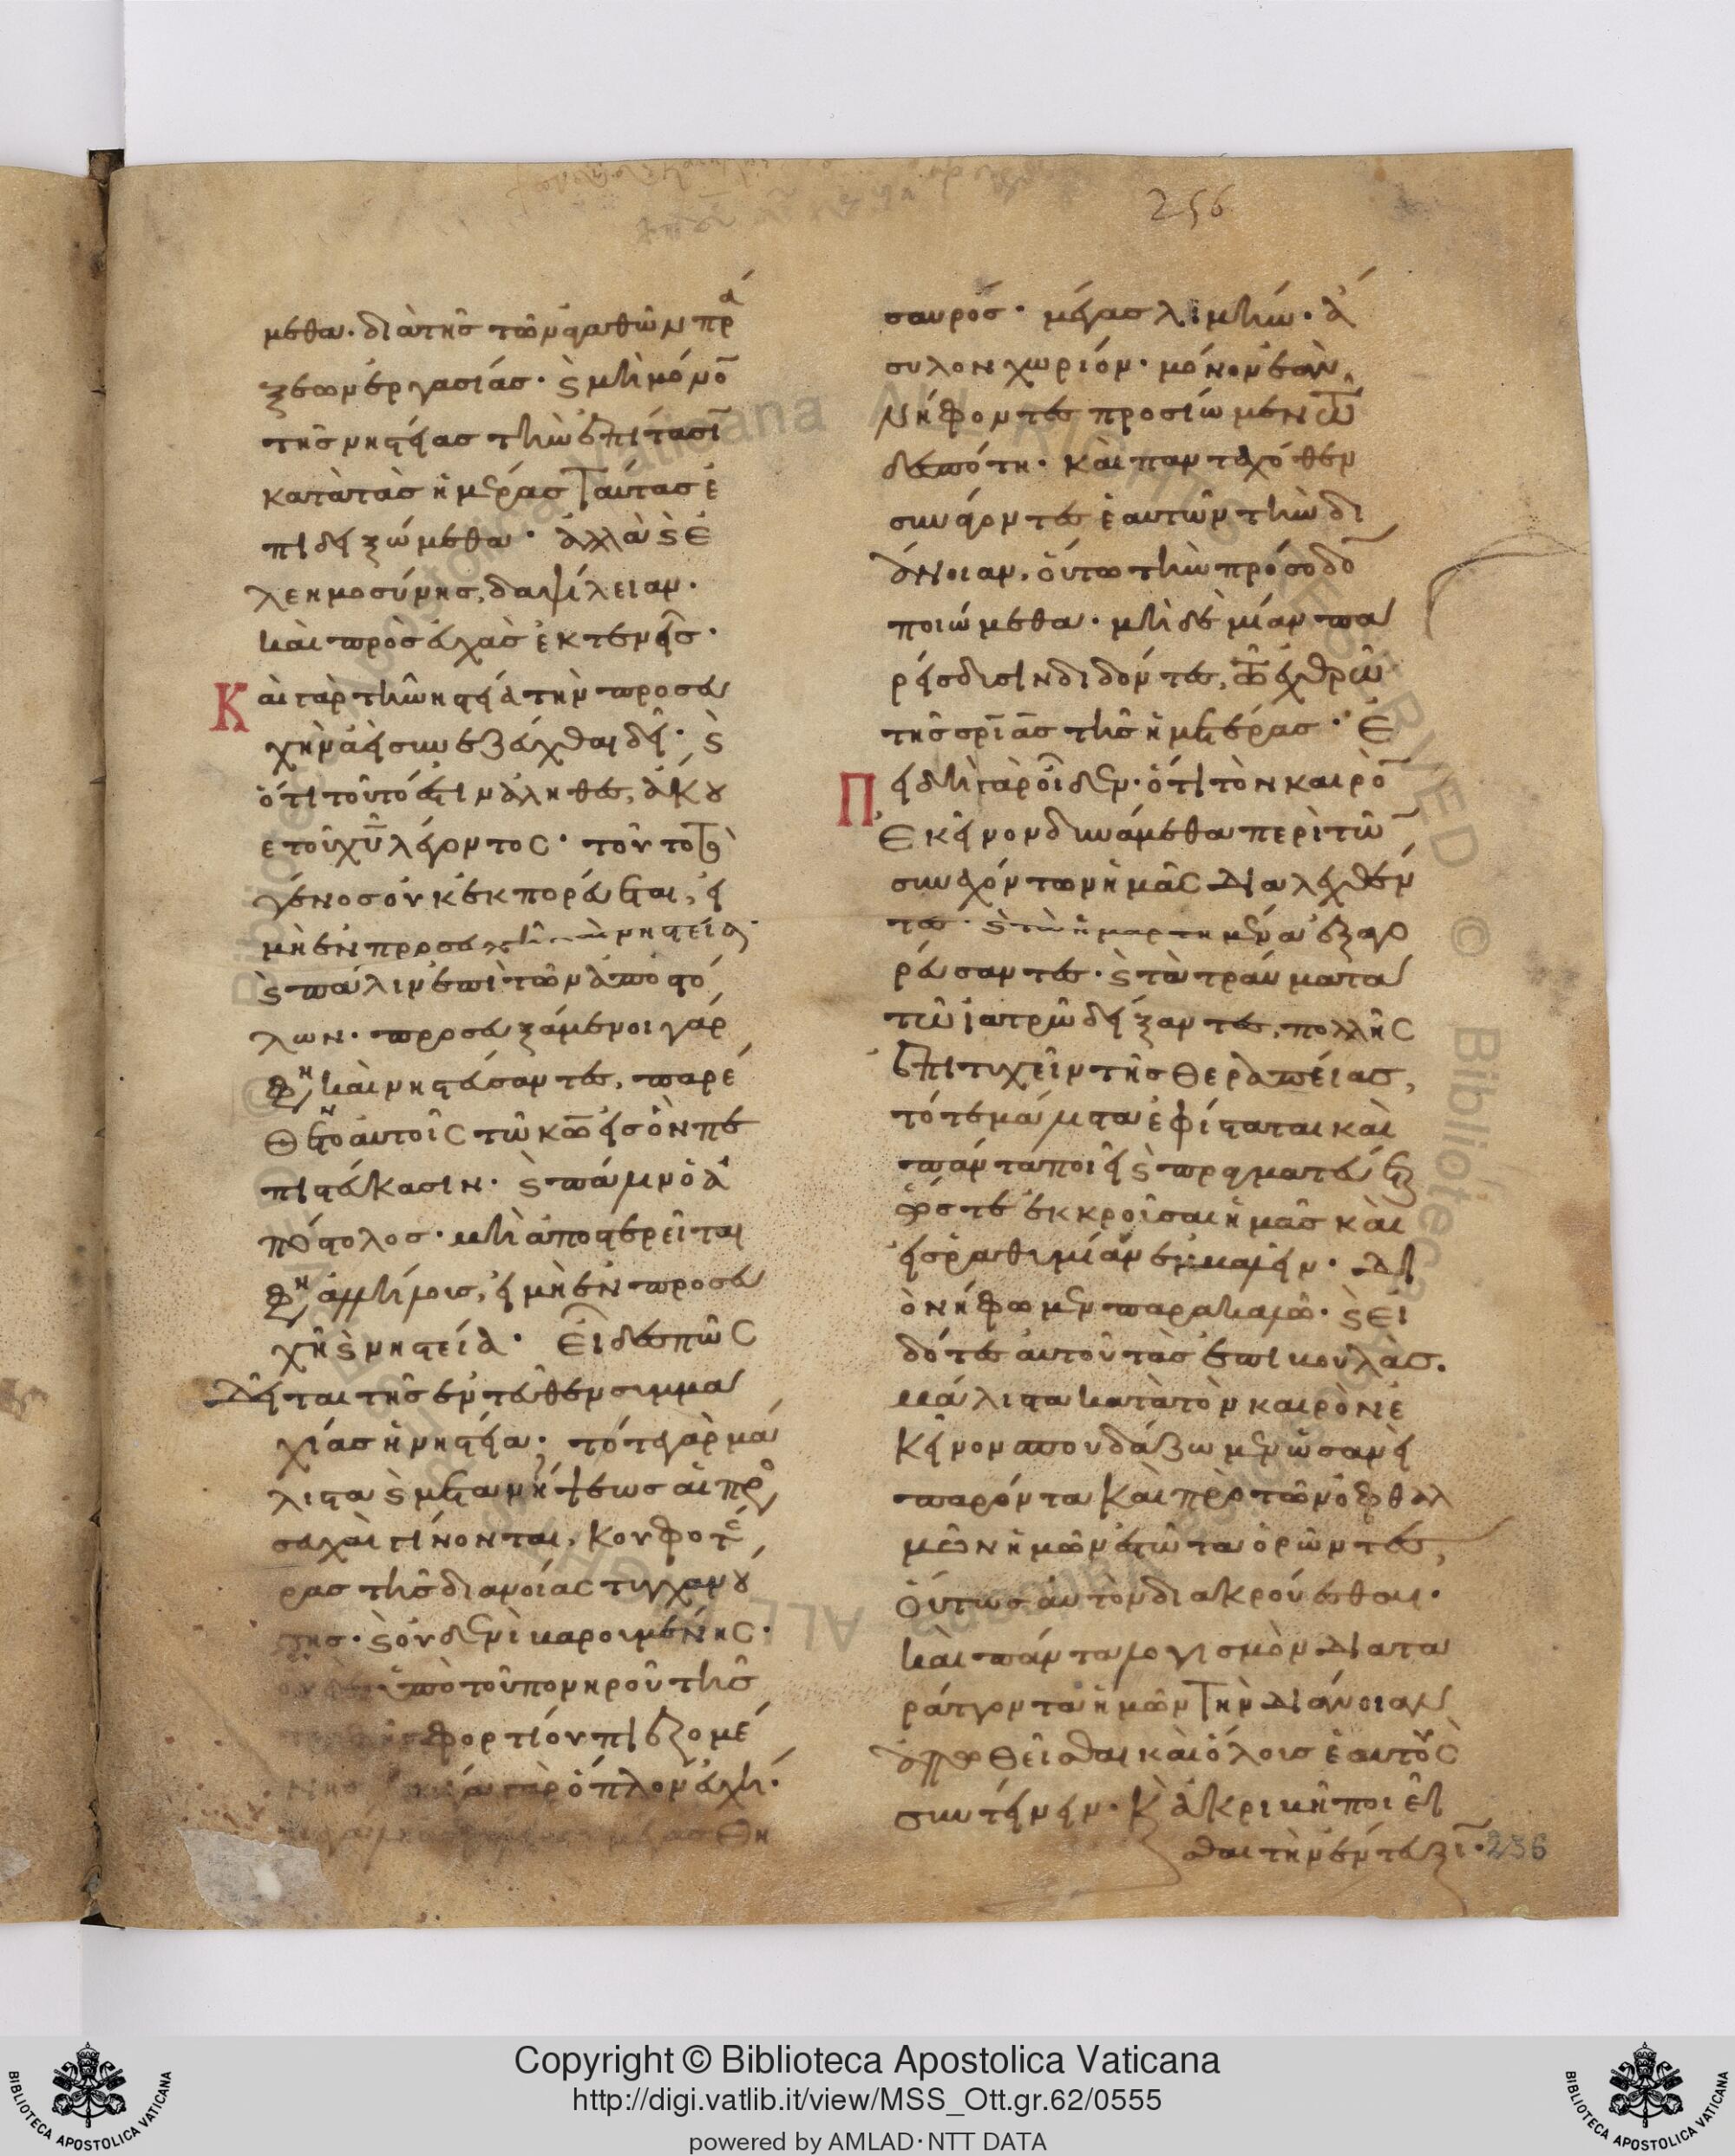 256
μεθα· διὰ τῆς τῶν ἀγαθῶν πρά
ξεων ἐργασίας· ϗ μὴ μόνο̄
τῆς νηστείας τὴν ἐπίτασῑ
κατὰ τὰς ἡμέρας ταύτας ἐ
πιδειξώμεθα· ἀλλὰ ϗ ἐ
λεημοσύνης, δαψίλειαν·
καὶ προσευχὰς ἐκτενεῖς·
Καὶ γὰρ τῆ νηστεία τὴν προσευ
χὴν ἀεὶ συνεζεύχθαι δεῖ· ϗ
ὅτι τοῦτό ἐστιν ἀληθές, ἄκου
ε τοῦ χῡ λέγοντος· τοῦτο τὸ
γένος οὐκ ἐκπορεύεται, εἰ
μὴ ἐν προσευχῆ καὶ νηστεία·
ϗ πάλιν ἐπὶ τῶν ἀποστό
λων· προσευξάμενοι γάρ
φη καὶ νηστεύσαντες, παρέ
θεντο αὐτοῖς τῶ κω̄ εἰς ὃν πε
πιστεύκασιν· ϗ πάλιν ὁ ἀ
πόστολος· μὴ ἀποστερεῖται
φη ἀλλήλοις, εἰ μὴ ἐν προσευ
χῆ ϗ νηστεία· Εἶδες πῶς
δεῖται τῆς ἐντεῦθεν συμμα
χίας ἡ νηστεία· τότε γὰρ μά
λιστα ϗ μετα νήψεως αἱ προ
σευχαὶ γίνονται, κουφοτέ
ρας τῆς διανοίας τυγχανού
σης· ϗ οὐδενὶ καρουμένης·
ὑπὸ τοῦ πονηροῦ τῆς
φορτίου πιεζομέ
νης γὰρ ὅπλον εὐχή·
μέγας θη
σαυρός· μέγας λιμήν· ἄ
συλον χωρίον· μόνον ἐὰν
νήφοντες προσίωμεν τῶ
δεσπότη· καὶ πανταχόθεν
συνάγοντες ἑαυτῶν τὴν δι
άνοιαν, οὕτω τὴν πρόσοδο̄
ποιώμεθα· μηδὲ μίαν πα
ρείσδυσιν διδόντες, τῶ ἐχθρῶ
τῆς σρ̄ίας τῆς ἡμετέρας· Ἐ
Πειδὴ γὰρ οἶδεν· ὅτι τὸν καιρὸ̄
ἐκεῖνον δυνάμεθα περὶ τῶ̄
συνεχόντων ἡμᾶς διαλεχθέν
τες· ϗ τὰ ἡμαρτημένα ἐξαγο
ρεύσαντες· ϗ τὰ τραύματα
τῶ ἰατρῶ δείξαντες, πολλῆς
ἐπιτυχεῖν τῆς θεραπείας,
τότε μάλιστα ἐφίσταται καὶ
πάντα ποιεῖ ϗ πραγματεύεται
ὥστε ἐκκροῦσαι ἡμᾶς καὶ
εἰς ῥαθυμίαν ἐμβαλεῖν· Δι
ὃ νήφωμεν παρακαλῶ· ϗ εἰ
δότες αὐτοῦ τὰς ἐπιβουλὰς.
μάλιστα κατὰ τὸν καιρὸν ἐ
κεῖνον σπουδάζωμεν ὡσανεὶ
παρόντα καὶ πρὸ τῶν ὀφθαλ
μῶν ἡμῶν ἑστῶτα ὁρῶντες,
οὕτως αὐτὸν διακρούεσθαι·
καὶ πάντα λογισμὸν διατα
ράττοντα ἡμῶν τὴν διάνοιαν
ἀπωθεῖσθαι καὶ ὅλους ἑαυτοὺς
συντείνειν· κ ἀκριβῆ ποιεῖ
σθαι τὴν ἔντευξῑ·
236
Copyright © Biblioteca Apostolica Vaticana
http://digi.vatlib.it/view/MSS_Ott.gr.62/0555
powered by AMLAD·NTT DATA
BIBLIOTECA APOSTOLICA VATICANA
BIBLIOTECA APOSTOLICA VATICANA